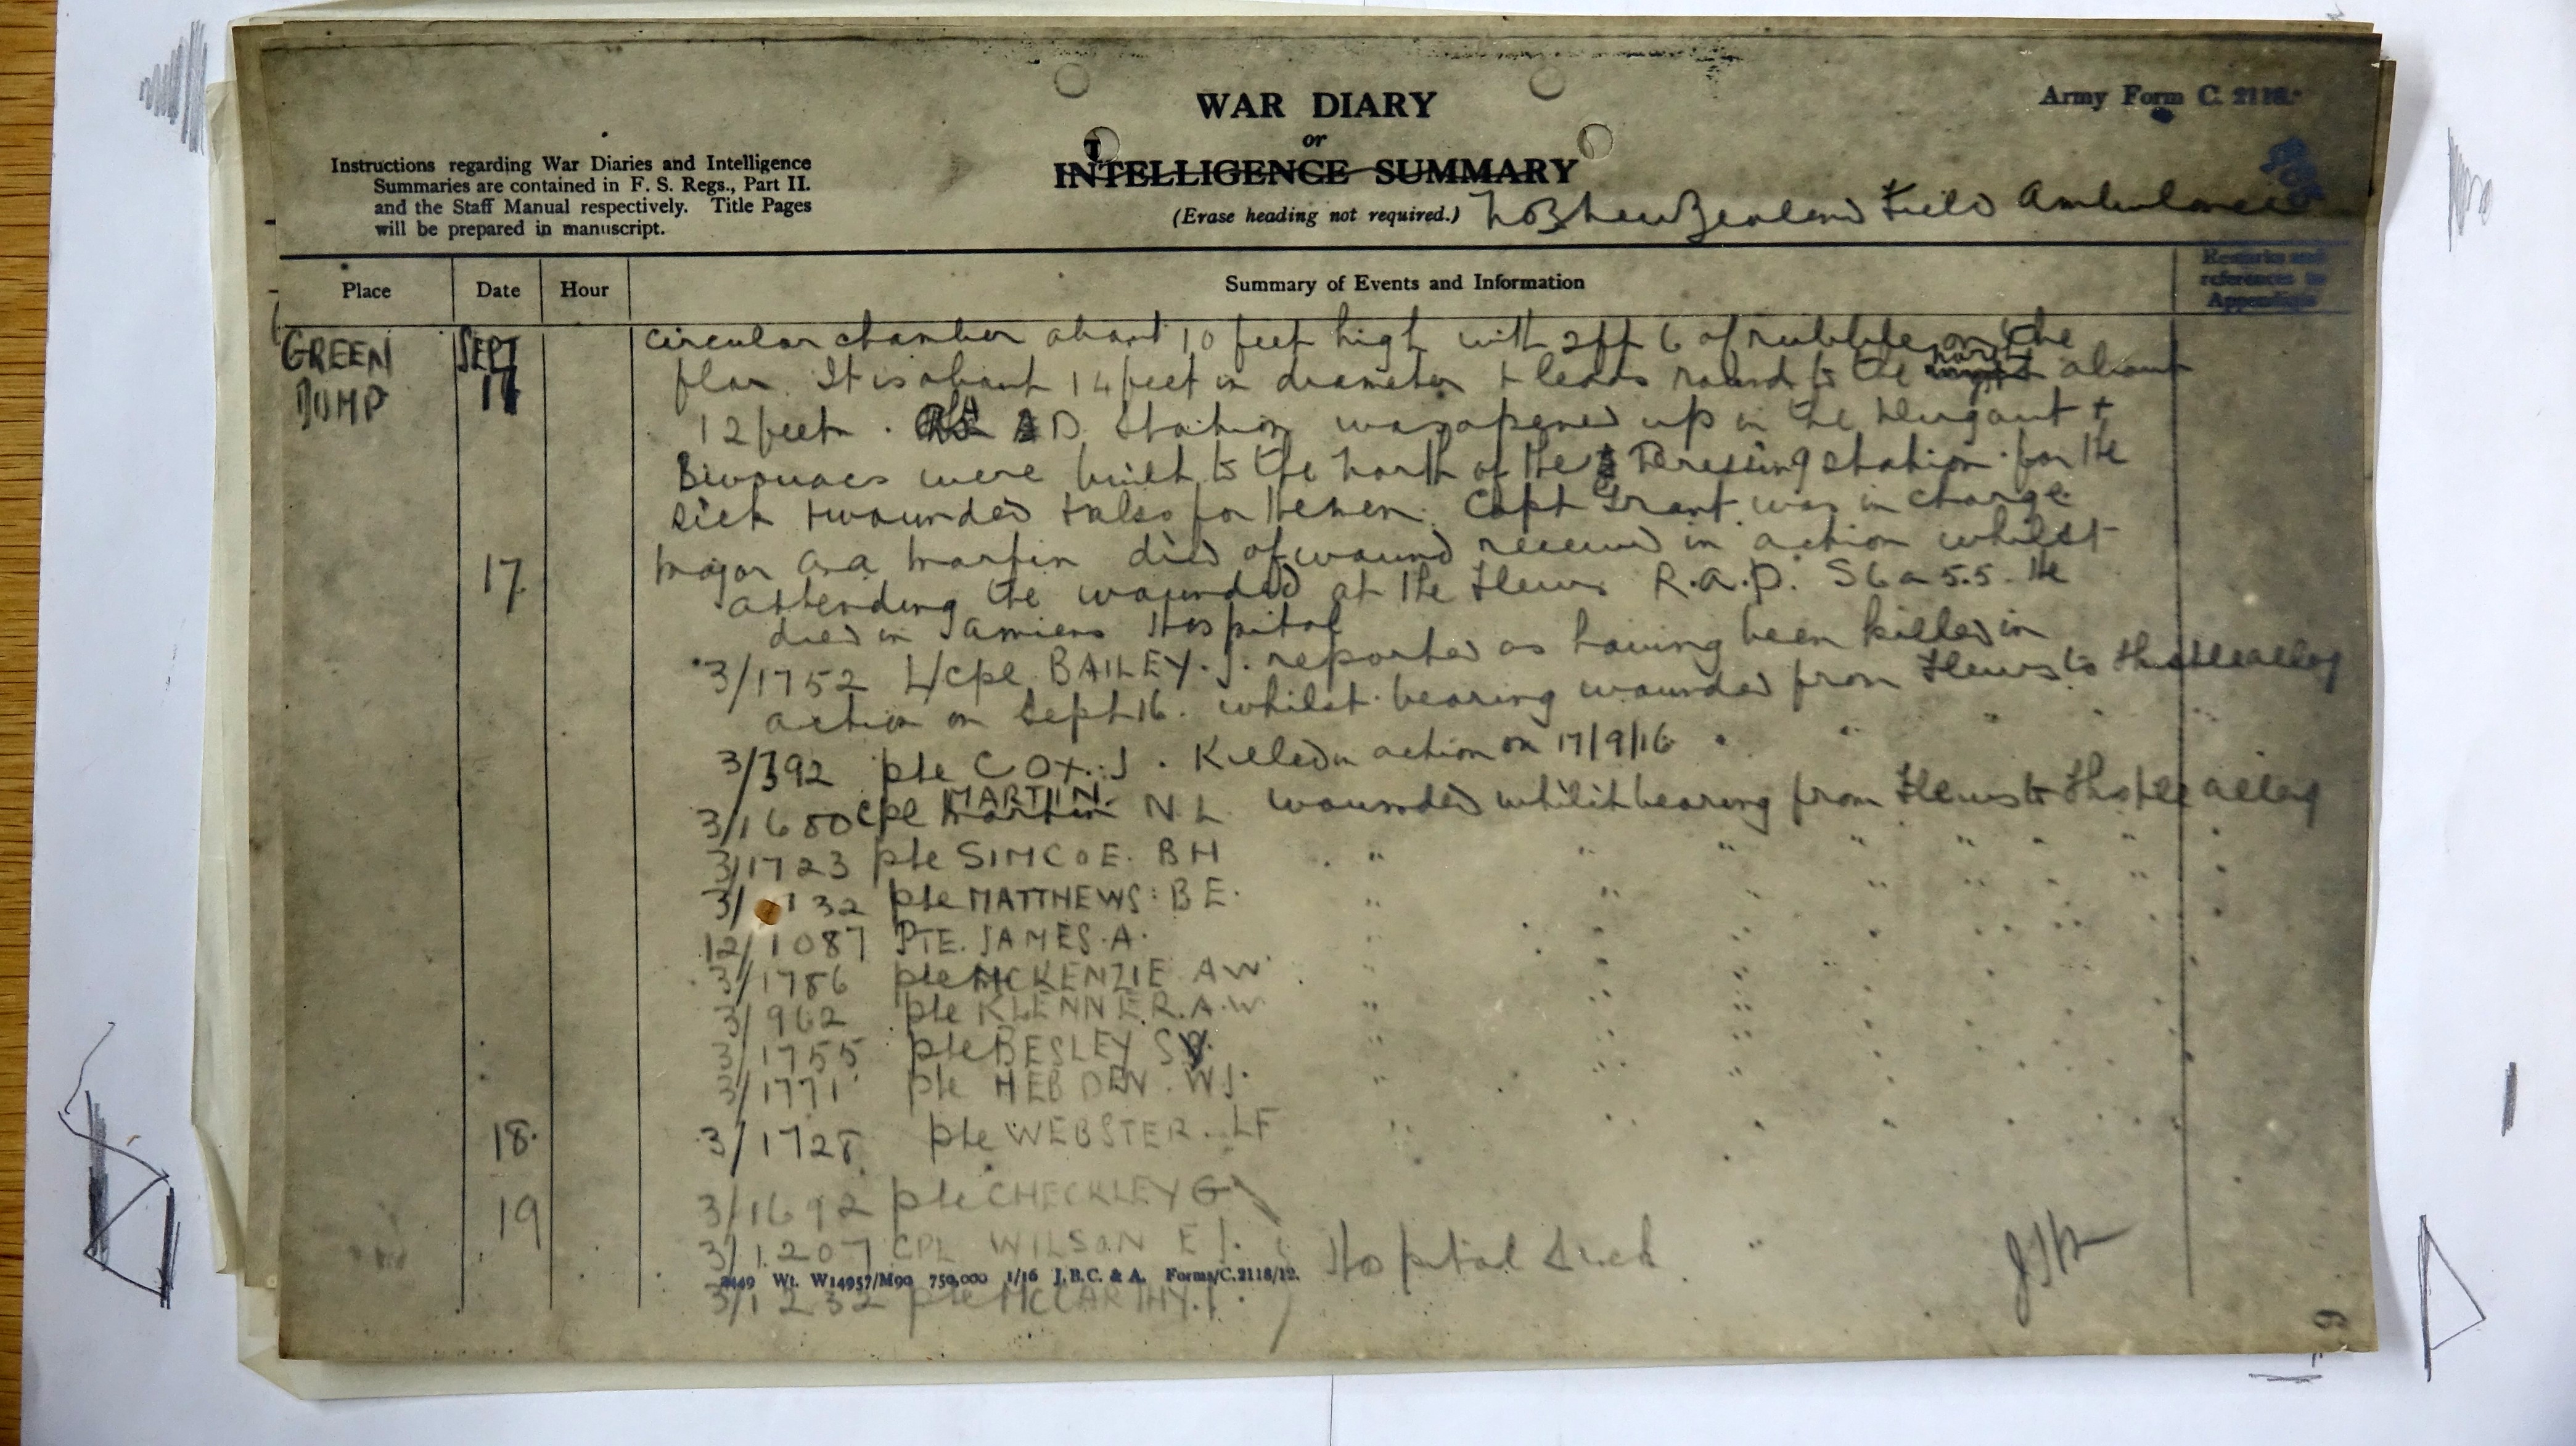 WAR DIARY
Army Form C. 2118.
or
INTELLIGENCE SUMMARY
Instructions regarding War Diaries and Intelligence
Summaries are contained in F. S. Regs., Part II.
and the Staff Manual respectively. Title Pages
will be prepared in manuscript.
(Erase heading not required.) No 3 New Zealand Field Ambulance
Place Date Hour Summary of Events and Information Remarks and references to Appendices
GREEN DUMP SEPT circular chamber about 10 feet high with 2ft 6 of rubble on the
floor. It is about 14 feet in diameter & leads round to the north about
12 feet. A D Station was opened up in the &
Bivouacs were built to the North of the Dressing station for the
sick & wounded & also for the men. Capt Grant was in charge
17 Major A A Martin died of wound received in action whilst
attending the wounded at the Flers R.A.P. S6a5.5. He
died in Amiens Hospital
3/1752 L/Cpl BAILEY. J. reported as having been killed in
action on Sept 16. whilst bearing wounded from Flers to Thistle alley
3/392 pte COX. J. Killed in action on 17/9/16 " " " "
3/1680 Cpl MARTIN. N L wounded whilst bearing from Flers to Thistle alley
3/1723 pte SIMCOE. B H " " " " " " "
3/132 pte MATTHEWS. B E. " " " " " " "
12/1087 PTE. JAMES. A. " " " " " " "
3/1786 pte MCKENZIE A W " " " " " " "
3/962 pte KLENNER. A. W " " " " " " "
3/1755 pte BESLEY S V. " " " " " " "
3/1771 pte HEBDEN. W J. " " " " " " "
18. 3/1728 pte WEBSTER. L F " " " " " " "
19 3/1692 pte CHECKLEY G
3/1207 CPL WILSON E J. Hospital Sick "
2449 Wt. W14957/M90 750,000 1/16 J.B.C. & A. Forms/C.2118/12.
3/1232 pte MCCARTHY. J.